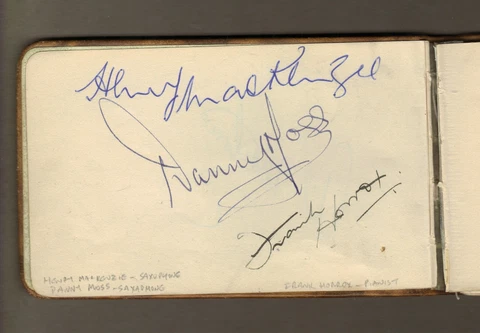 Henry MacKenzie
Danny Moss
Frank Horrox.
HENRY MACKENZIE - SAXOPHONE
DANNY MOSS - SAXAPHONE
FRANK HORROX - PIANIST